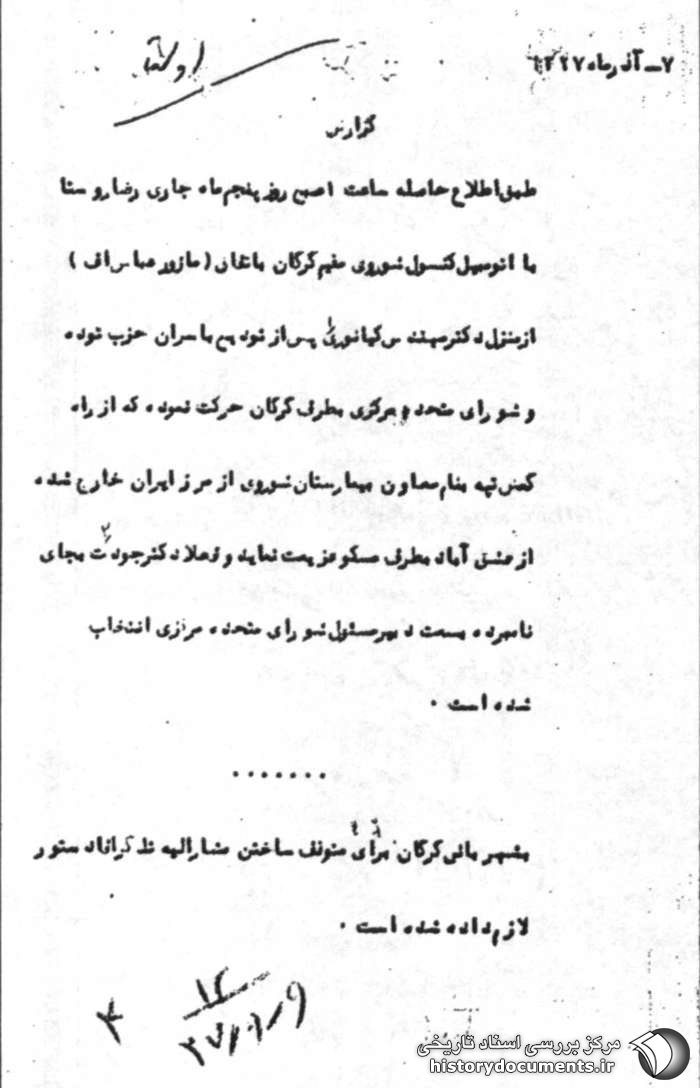 ۷ــ آذرماه ۱۳۲۷
گزارش
طبق اطلاع حاصله ساعت ۱ صبح روز پنجم ماه جاری رضا روستا
با اتومبیل کنسول شوروی مقیم گرگان باتفاق ( ماژور عباس اف )
از منزل دکتر مهندس کیانوری پس از تودیع با سران حزب توده
و شورای متحده مرکزی بطرف گرگان حرکت نموده که از راه
گمش تپه بنام معاون بیمارستان شوروی از مرز ایران خارج شده
از عشق آباد بطرف مسکو عزیمت نماید و فعلا دکتر جودت بجای
نامبرده بسمت دبیر مسئول شورای متحده مرکزی انتخاب
شده است ۰
۰۰۰۰۰۰۰
بشهربانی گرگان برای متوقف ساختن مشارالیه تلگرافا دستور
لازم داده شده است ۰
مرکز بررسی اسناد تاریخی
historydocuments.ir